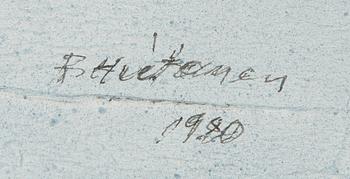 B Hietanen
1980